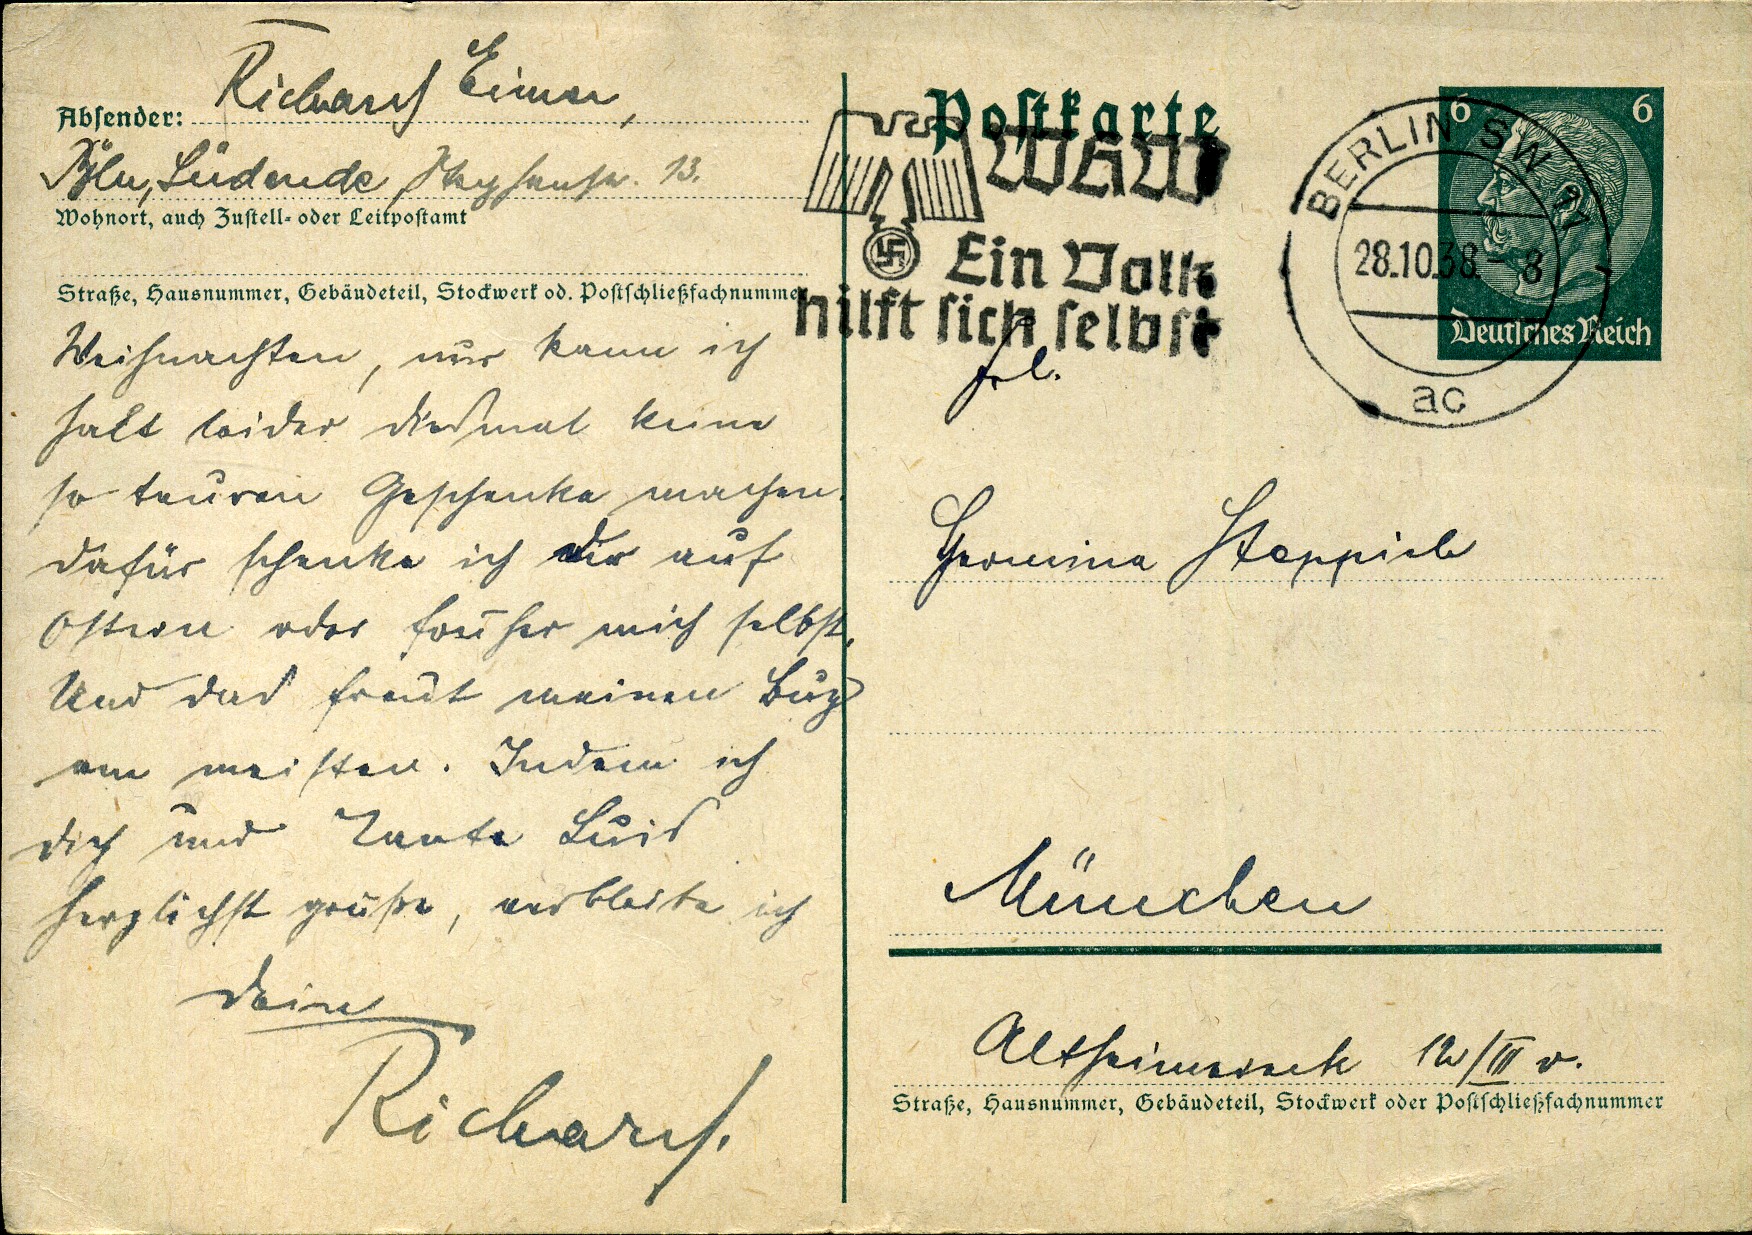 Absender: Richard Eimer,
Bln, Südende, 13.
Wohnort, auch Zustell- oder Leitpostamt
Straße, Hausnummer, Gebäudeteil, Stockwerk od. Postschließfachnummer
Weihnachten, nur kann ich
halt leider diesmal keine
so teuren Geschenke machen.
dafür schenke ich dir auf
Ostern oder früher mich selbst.
Und das freut meinen
am meisten. Indem ich
dich und Tante Luis
herzlichst grüße, verbleibe ich
dein
Richard.
Postkarte
WHW
Ein Volk
hilft sich selbst
BERLIN SW 11
28.10.38.-8
ac
6 6
Deutsches Reich
Frl.
Hermina Steppich
München
Altheimereck 12/III v.
Straße, Hausnummer, Gebäudeteil, Stockwerk oder Postschließfachnummer